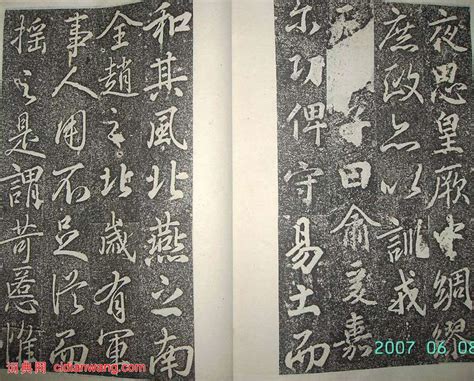 夜思皇厥中綢繆
庶政亦以訓我
天子曰俞爰嘉
尔功俾守易土而
和其風北燕之南
全趙之北歲有軍
事人用不足從而
搖之是謂苛慝惟
2007 06 08
词典网 cidianwang.com